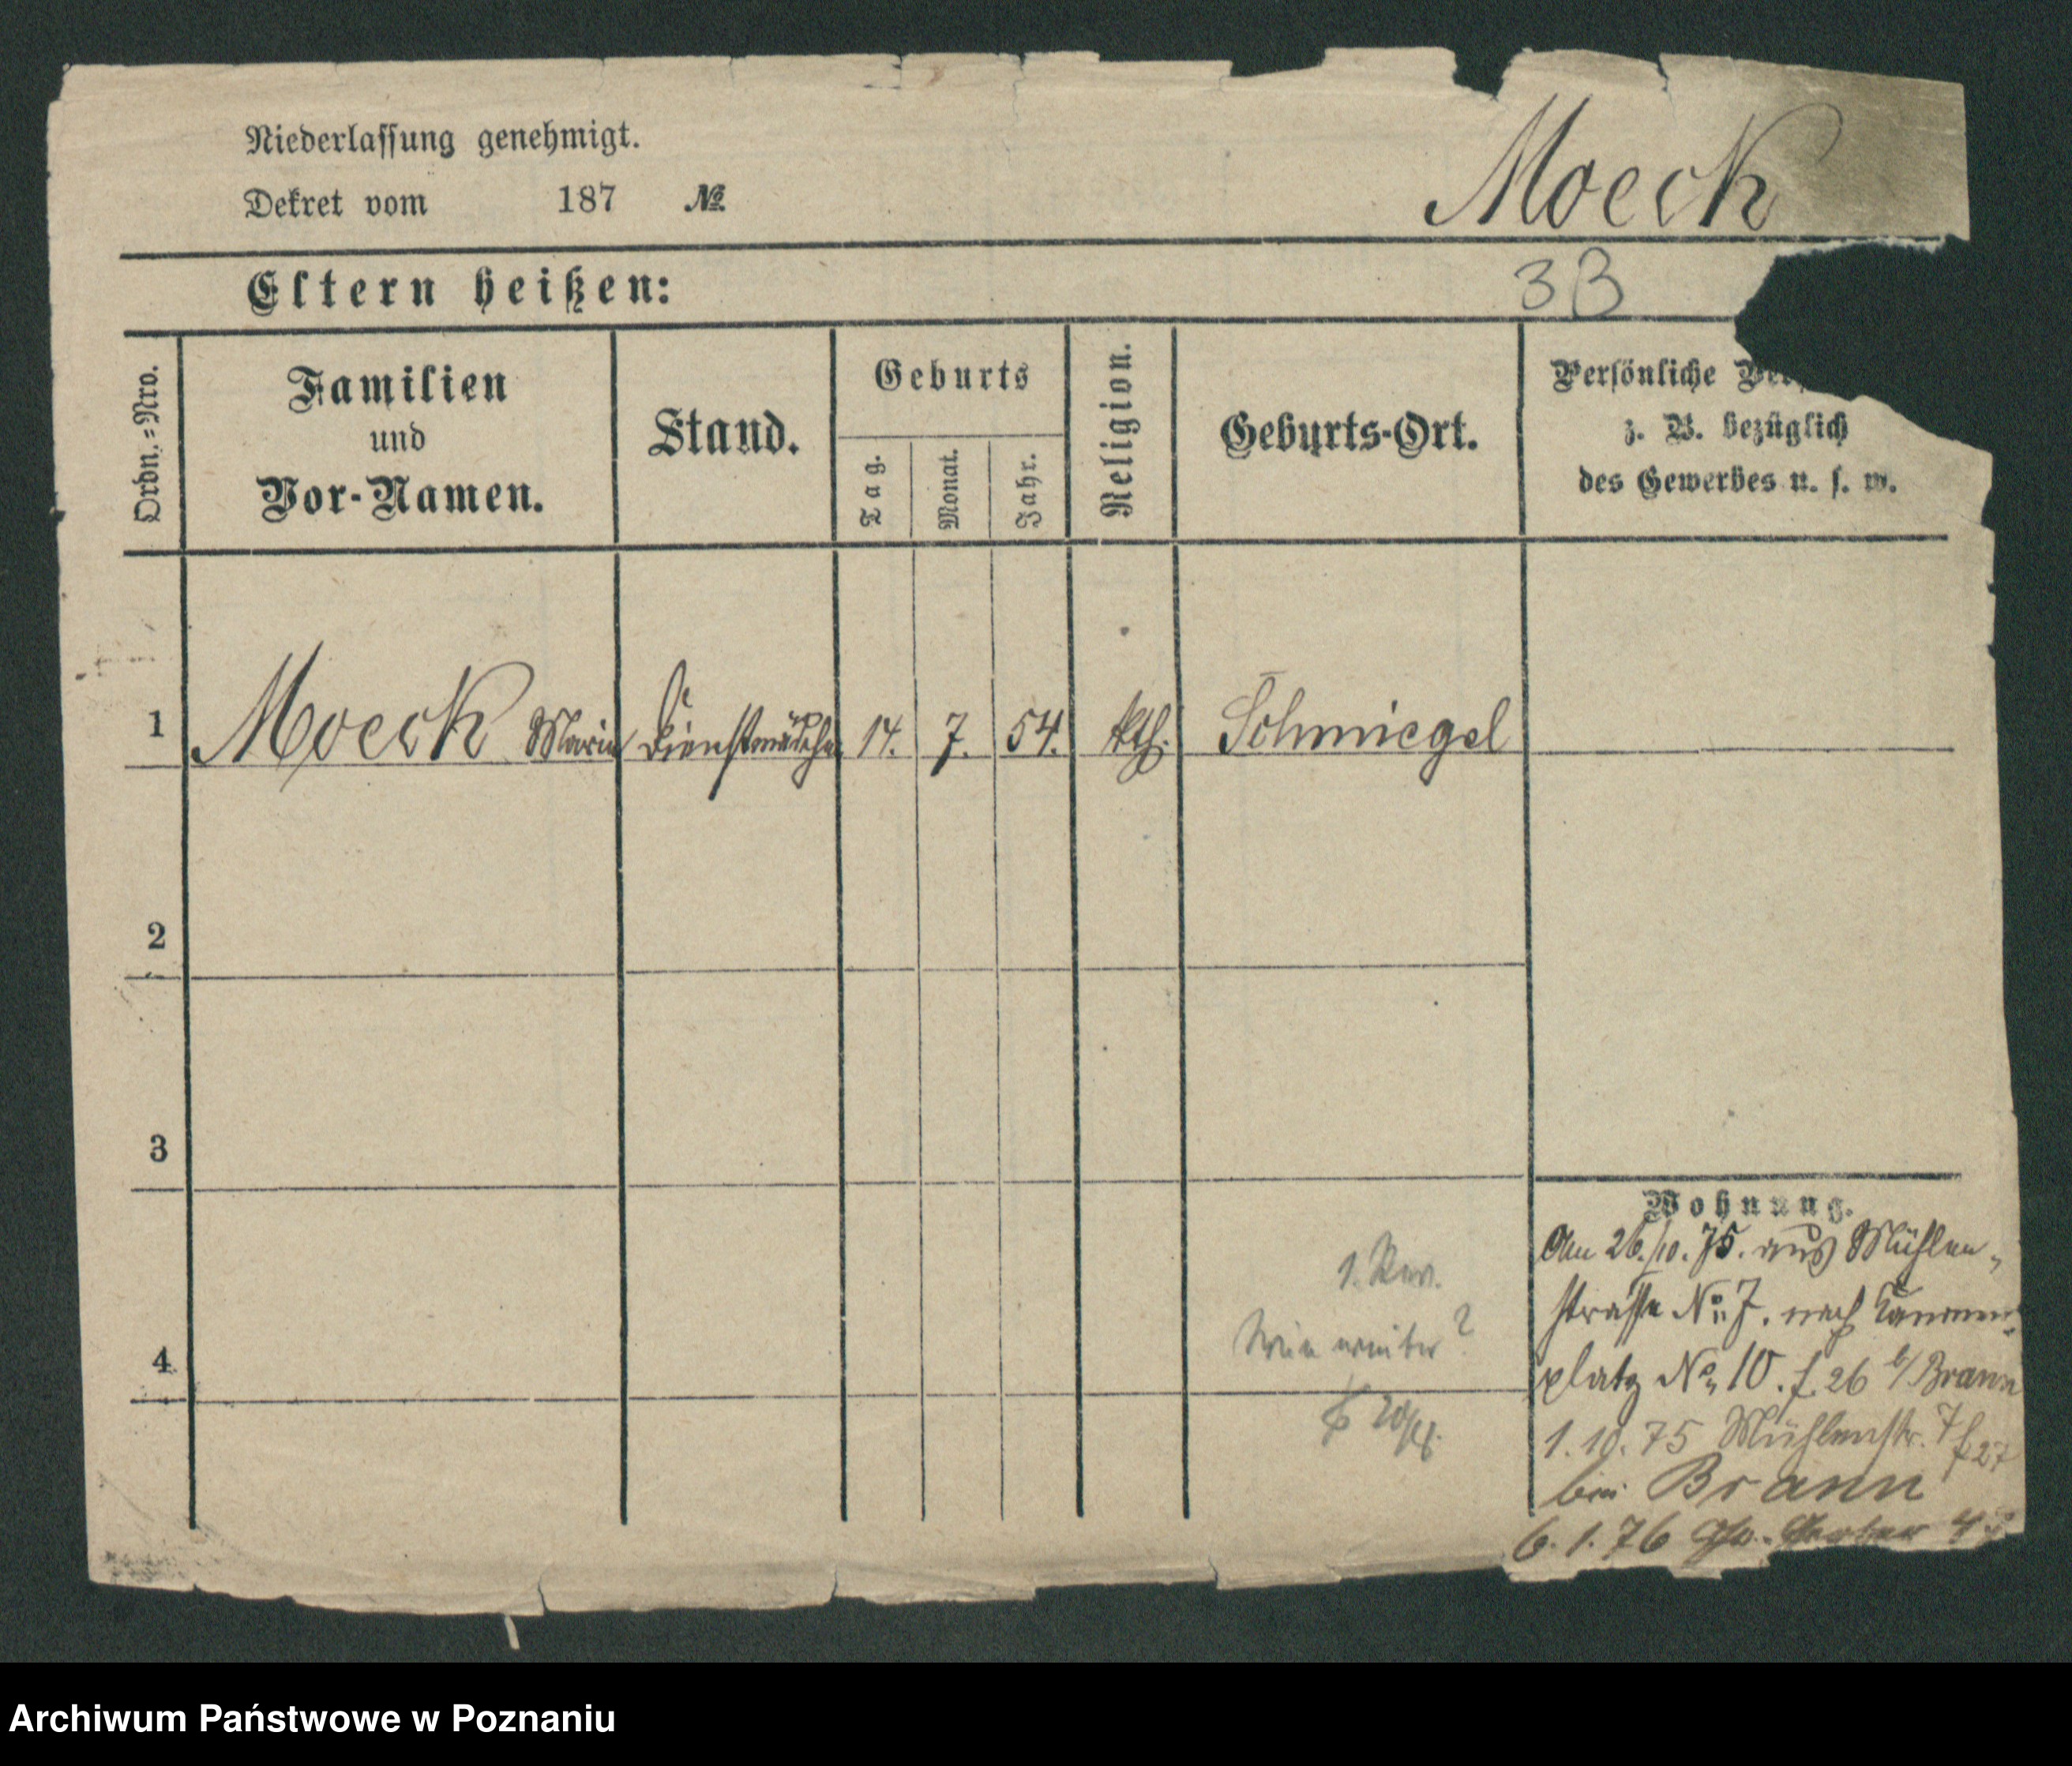 Moeck
Niederlassung genehmigt.
Dekret vom 187 №
Eltern heißen:
3B
Ordn.=Nro.
Familien
und
Vor-Namen.
Stand.
Geburts
Tag.
Monat.
Jahr.
Religion.
Geburts-Ort.
Persönliche
z. B. bezüglich
des Gewerbes u. s. w.
1 Moeck Marie Dienstmädchen 14. 7. 54. kth. Schmiegel
2
3
4
Wohnung.
Am 26./10. 75. aus Mühlen-
strasse No 7. nach
platz No 10. f. 26 b/ Brann
1.10.75 Mühlenstr. 7 f 27
bei Brann
6.1.76 Gr. Gerber
1.
weiter?
Archiwum Państwowe w Poznaniu